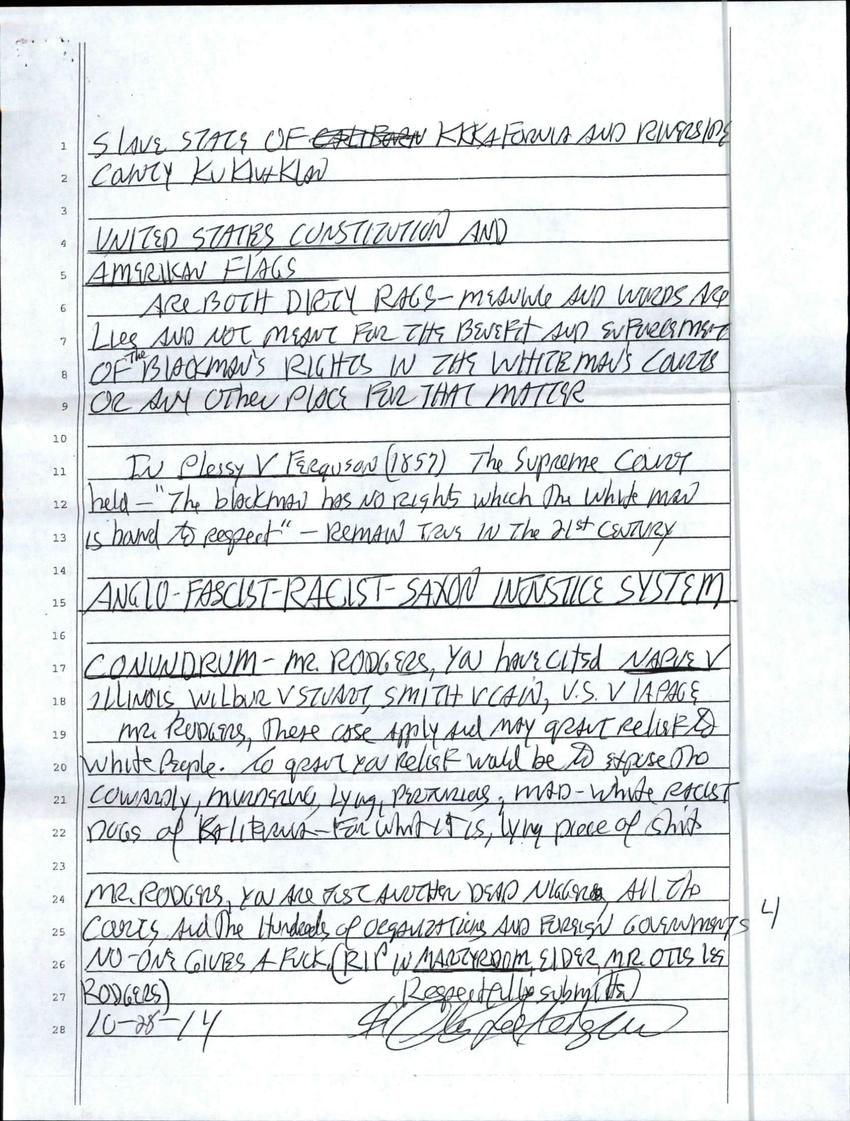 1 SLAVE STATE OF CALIFORN KKKAFORNIA AND RIVERSIDE
2 COUNTY KU KLUX KLAN
3
4 UNITED STATES CONSTITUTION AND
5 AMERIKAN FLAGS
6 ARE BOTH DIRTY RAGS- MEANING AND WORDS ARE
7 LIES AND NOT MEANT FOR THE BENEFIT AND ENFORCEMENT
8 OF The BLACKMAN'S RIGHTS IN THE WHITE MAN'S COURTS
9 OR ANY OTHER PLACE FOR THAT MATTER
10
11 IN Plessy V FERGUSON (1857) The Supreme Court
12 held - "The blackman has NO RIGHTS which The White man
13 is bound to respect" - REMAIN TRUE IN The 21st CENTURY
14
15 ANGLO-FASCIST-RACIST-SAXON INJUSTICE SYSTEM
16
17 CONUNDRUM- MR. RODGERS, YOU have cited NAPUE V
18 ILLINOIS WILBUR V STUART, SMITH V CAIN, U.S. V LAPAGE
19 MR. RODGERS, These case Apply and may grant Relief to
20 White People. To grant you RELIEF would be to expose The
21 COWARDLY, MURDERING, LYING, PERJURIOUS, MAD-WHITE RACIST
22 DOGS of KALIFORNIA-FOR what it is, lying piece of shit
23
24 MR. RODGERS, YOU ARE JUST ANOTHER DEAD NIGGER, All The
25 COURTS and The Hundreds of ORGANIZATIONS AND FOREIGN GOVERNMENTS
26 NO-ONE GIVES A FUCK. (RIP IN MARTYRDOM, ELDER, MR. OTIS LEE
27 RODGERS) Respectfully submitted
28 10-28-14
4